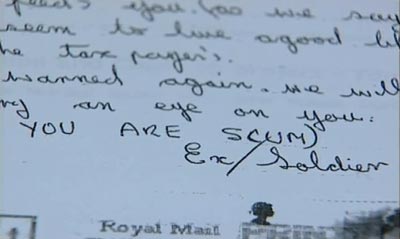 you. (as we say
seem to live a good
he tax payer's.
warned again. we will
an eye on you.
YOU ARE SCUM)
Ex/Soldier
Royal Mail